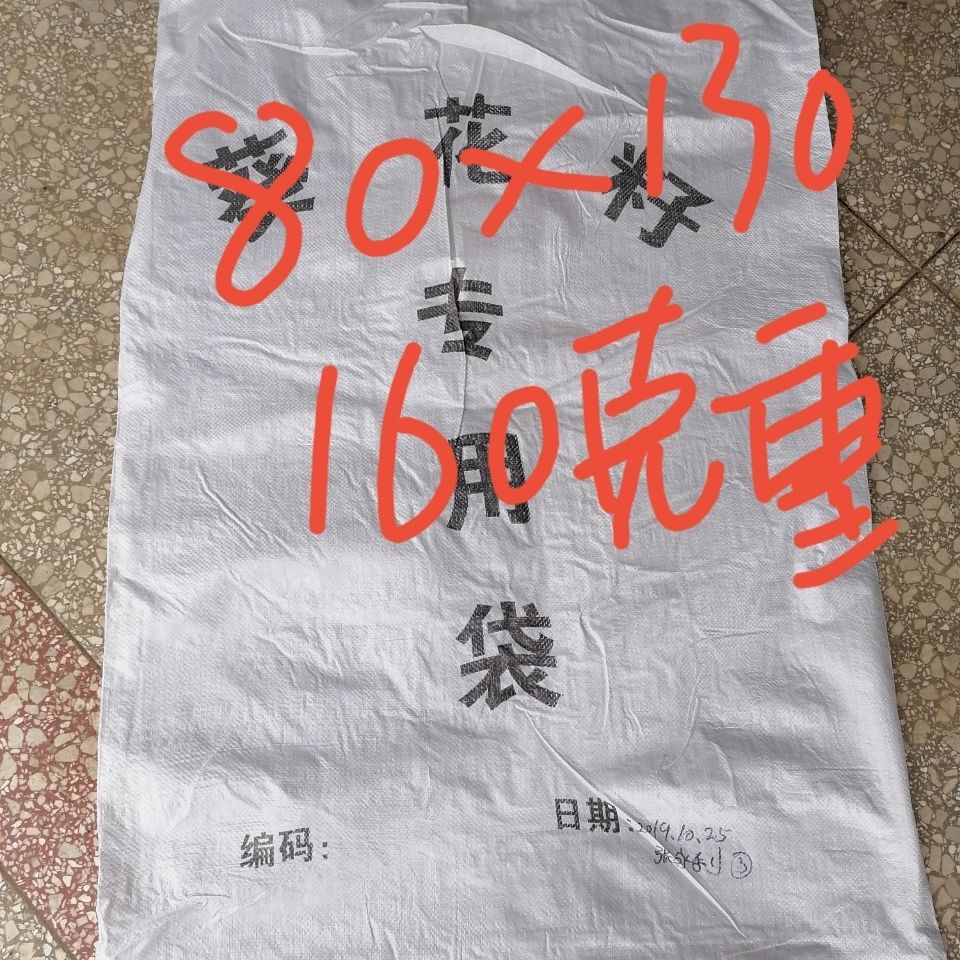 80x130
葵花籽
专
160克重
用
袋
编码：
日期：2019.10.25
③